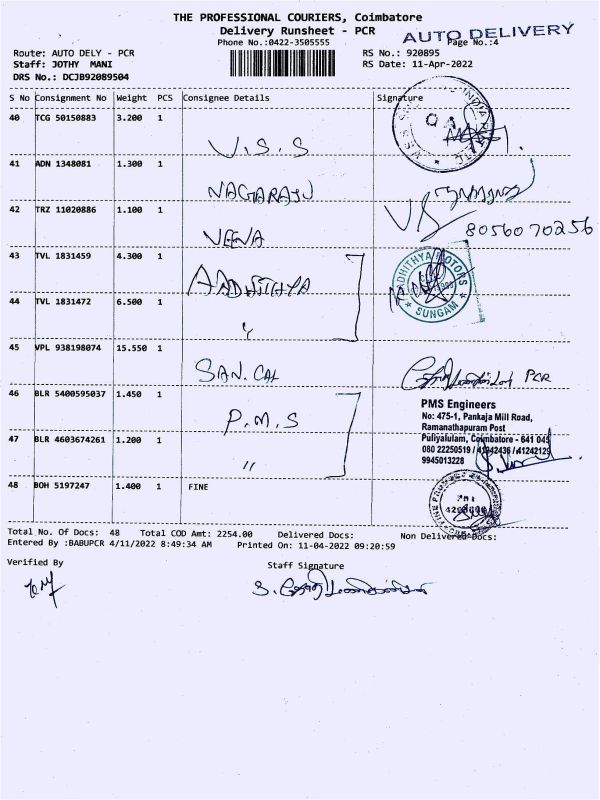 THE PROFESSIONAL COURIERS, Coimbatore
Delivery Runsheet - PCR
AUTO DELIVERY
Phone No.:0422-3505555
Page No.:4
Route: AUTO DELY - PCR
RS No.: 920895
Staff: JOTHY MANI
RS Date: 11-Apr-2022
DRS No.: DCJB92089504
S No Consignment No Weight PCS Consignee Details Signature
40 TCG 50150883 3.200 1
V.S.S
41 ADN 1348081 1.300 1
NAGARAJU
42 TRZ 11020886 1.100 1
VEENA
8056070256
43 TVL 1831459 4.300 1
AADHITHYA
ADHITHYA MOTORS
SUNGAM
44 TVL 1831472 6.500 1
"
45 VPL 938198074 15.550 1
SAN.CAL
PCR
46 BLR 5400595037 1.450 1
P.M.S
PMS Engineers
No: 475-1, Pankaja Mill Road,
Ramanathapuram Post
47 BLR 4603674261 1.200 1
Puliyalulam, Coimbatore - 641 045
"
080 22250519 / 41242436 / 41242129
9945013228
48 BOH 5197247 1.400 1 FINE
Total No. Of Docs: 48 Total COD Amt: 2254.00 Delivered Docs: Non Delivered Docs:
Entered By :BABUPCR 4/11/2022 8:49:34 AM Printed On: 11-04-2022 09:20:59
Verified By
Staff Signature